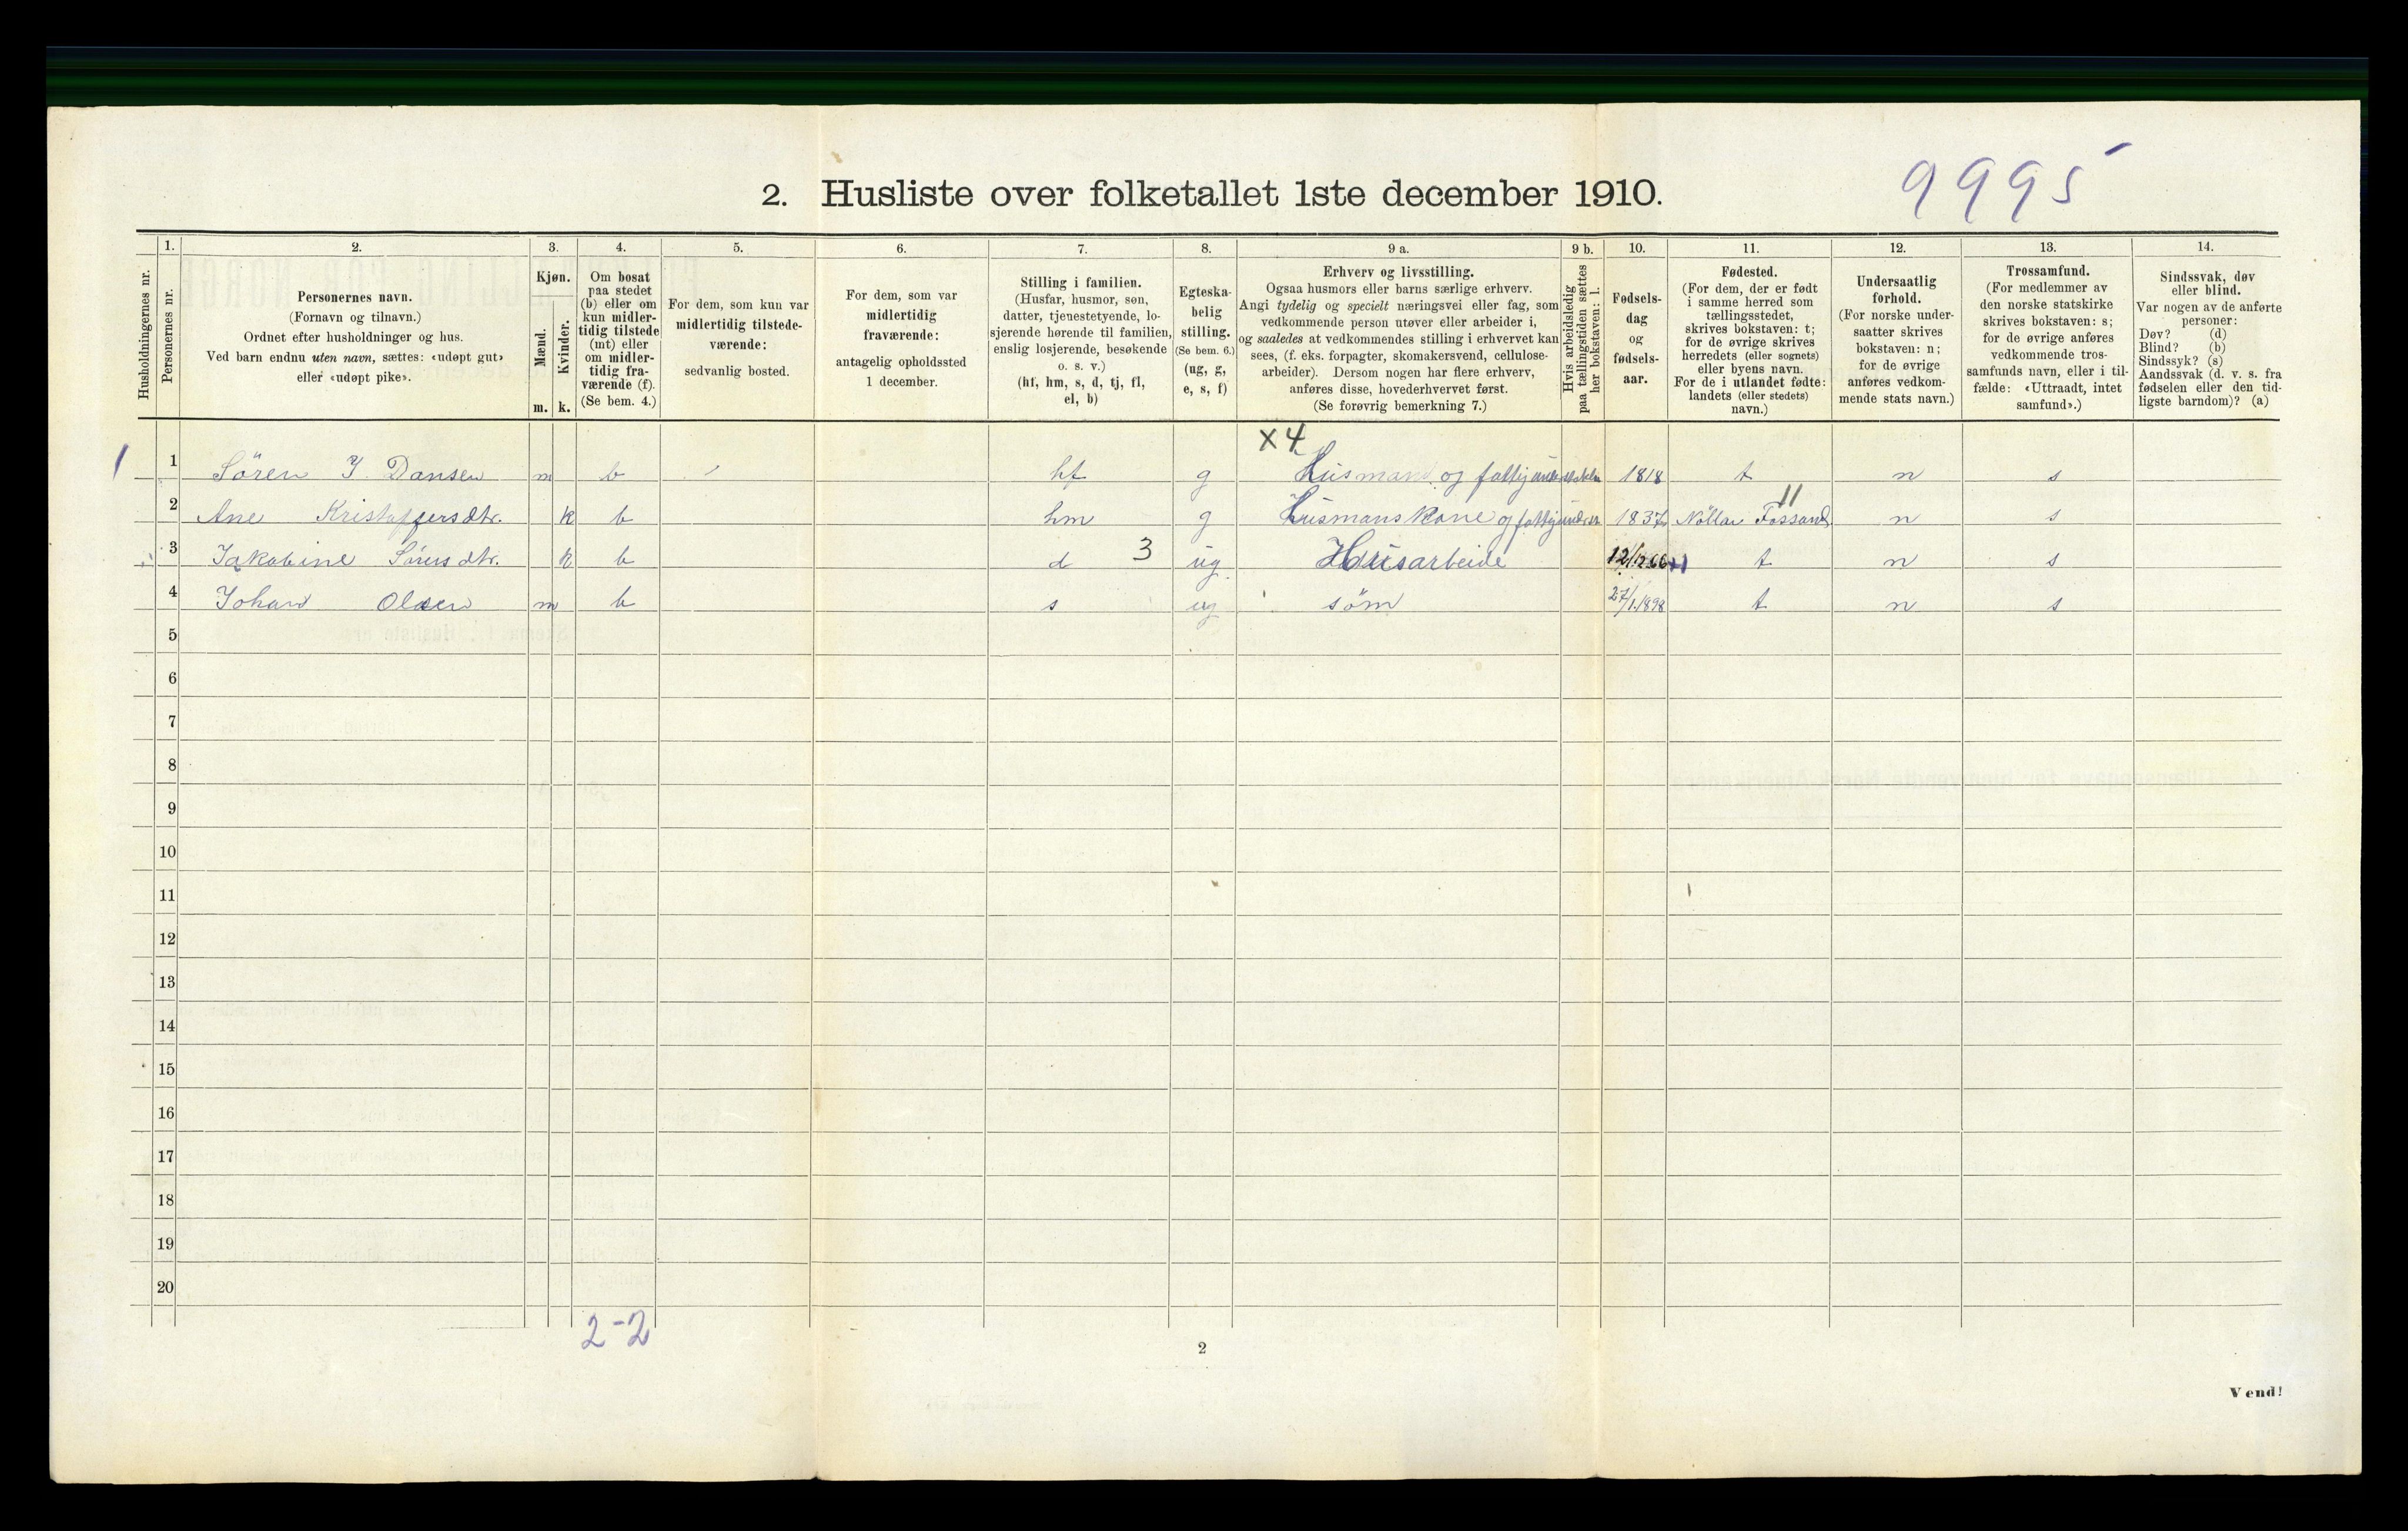 9995
2. Husliste over folketallet 1ste december 1910.
Husholdningernes nr.
1.
Personernes nr.
2.
Personernes navn.
(Fornavn og tilnavn.)
Ordnet efter husholdninger og hus.
Ved barn endnu uten navn, sættes: «udøpt gut»
eller «udøpt pike».
3.
Kjøn.
Mænd.
Kvinder.
m. k.
4.
Om bosat
paa stedet
(b) eller om
kun midler-
tidig tilstede
(mt) eller
om midler-
tidig fra-
værende (f).
(Se bem. 4.)
5.
For dem, som kun var
midlertidig tilstede-
værende:
sedvanlig bosted.
6.
For dem, som var
midlertidig
fraværende:
antagelig opholdssted
1 december.
7.
Stilling i familien.
(Husfar, husmor, søn,
datter, tjenestetyende, lo-
sjerende hørende til familien,
enslig losjerende, besøkende
o. s. v.)
(hf, hm, s, d, tj, fl,
el, b)
8.
Egteska-
belig
stilling.
(Se bem. 6.)
(ug, g,
e, s, f)
9 a.
Erhverv og livsstilling.
Ogsaa husmors eller barns særlige erhverv.
Angi tydelig og specielt næringsvei eller fag, som
vedkommende person utøver eller arbeider i,
og saaledes at vedkommendes stilling i erhvervet kan
sees, (f. eks. forpagter, skomakersvend, cellulose-
arbeider). Dersom nogen har flere erhverv,
anføres disse, hovederhvervet først.
(Se forøvrig bemerkning 7.)
9 b.
Hvis arbeidsledig
paa tællingstiden sættes
her bokstaven: l.
10.
Fødsels-
dag
og
fødsels-
aar.
11.
Fødested.
(For dem, der er født
i samme herred som
tællingsstedet,
skrives bokstaven: t;
for de øvrige skrives
herredets (eller sognets)
eller byens navn.
For de i utlandet fødte:
landets (eller stedets)
navn.)
12.
Undersaatlig
forhold.
(For norske under-
saatter skrives
bokstaven: n;
for de øvrige
anføres vedkom-
mende stats navn.)
13.
Trossamfund.
(For medlemmer av
den norske statskirke
skrives bokstaven: s;
for de øvrige anføres
vedkommende tros-
samfunds navn, eller i til-
fælde: «Uttraadt, intet
samfund».)
14.
Sindssvak, døv
eller blind.
Var nogen av de anførte
personer:
Døv? (d)
Blind? (b)
Sindssyk? (s)
Aandssvak (d. v. s. fra
fødselen eller den tid-
ligste barndom)? (a)
x 4
1 1 Sören J. Dansen m b hf g Husmand og 1818 t n s
11
2 Ane Kristoffersdtr. k b hm g Husmanskone og 1837 Fossand n s
3 Jakobine Sörusdtr. k b d 3 ug Husarbeide 12/12 66 t n s
4 Johan Olsen m b s ug søm 27/1 1898 t n s
5
6
7
8
9
10
11
12
13
14
15
16
17
18
19
20
2-2
2
Vend!